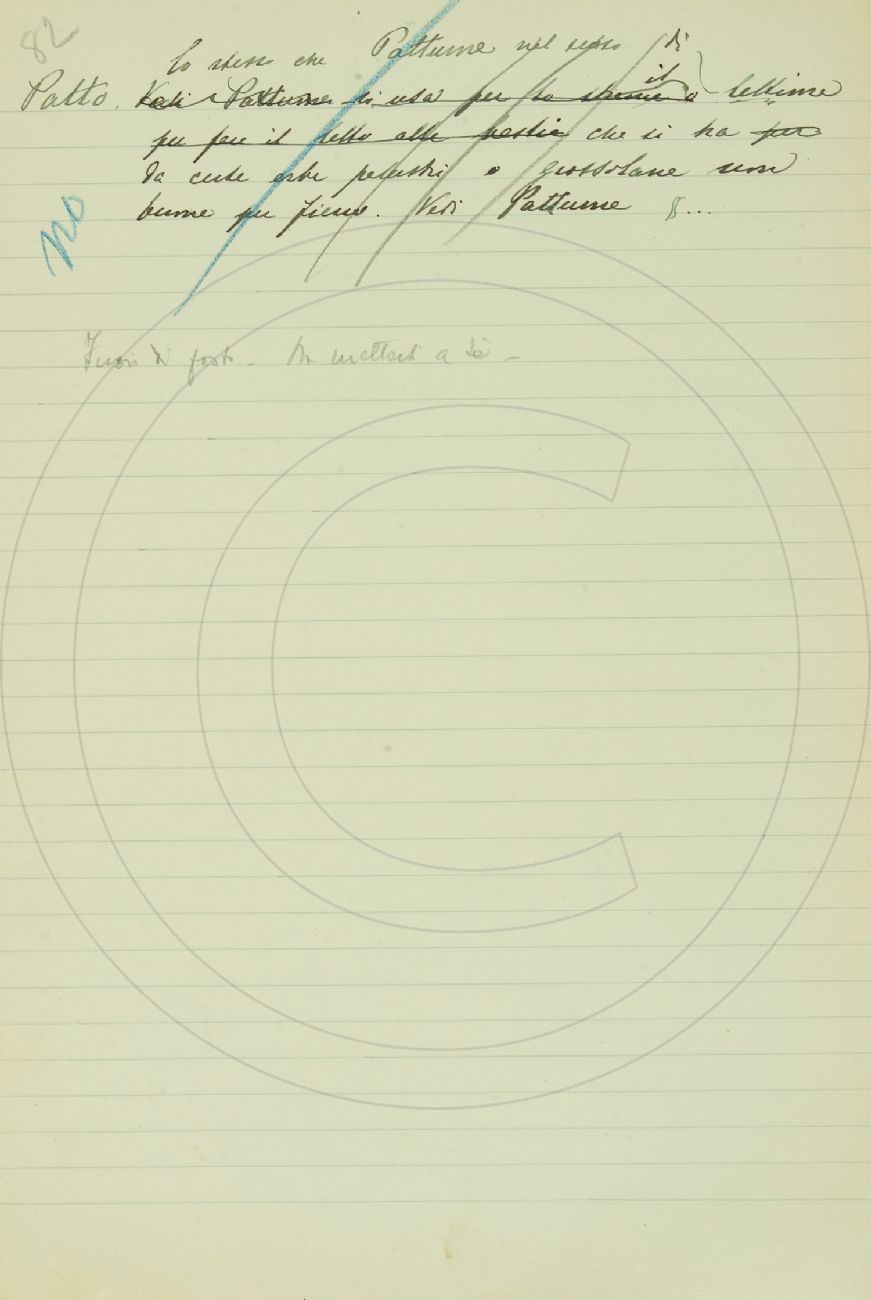 82
Lo stesso che Pattume nel senso di
il
Patto. Vedi Pattume si usa per lo strame o lettime
per fare il letto alle bestie che si ha per
da certe erbe palustri e grossolane non
buone per fieno. Vedi Pattume §...
no
Fuori di posto - Da mettersi a sè -